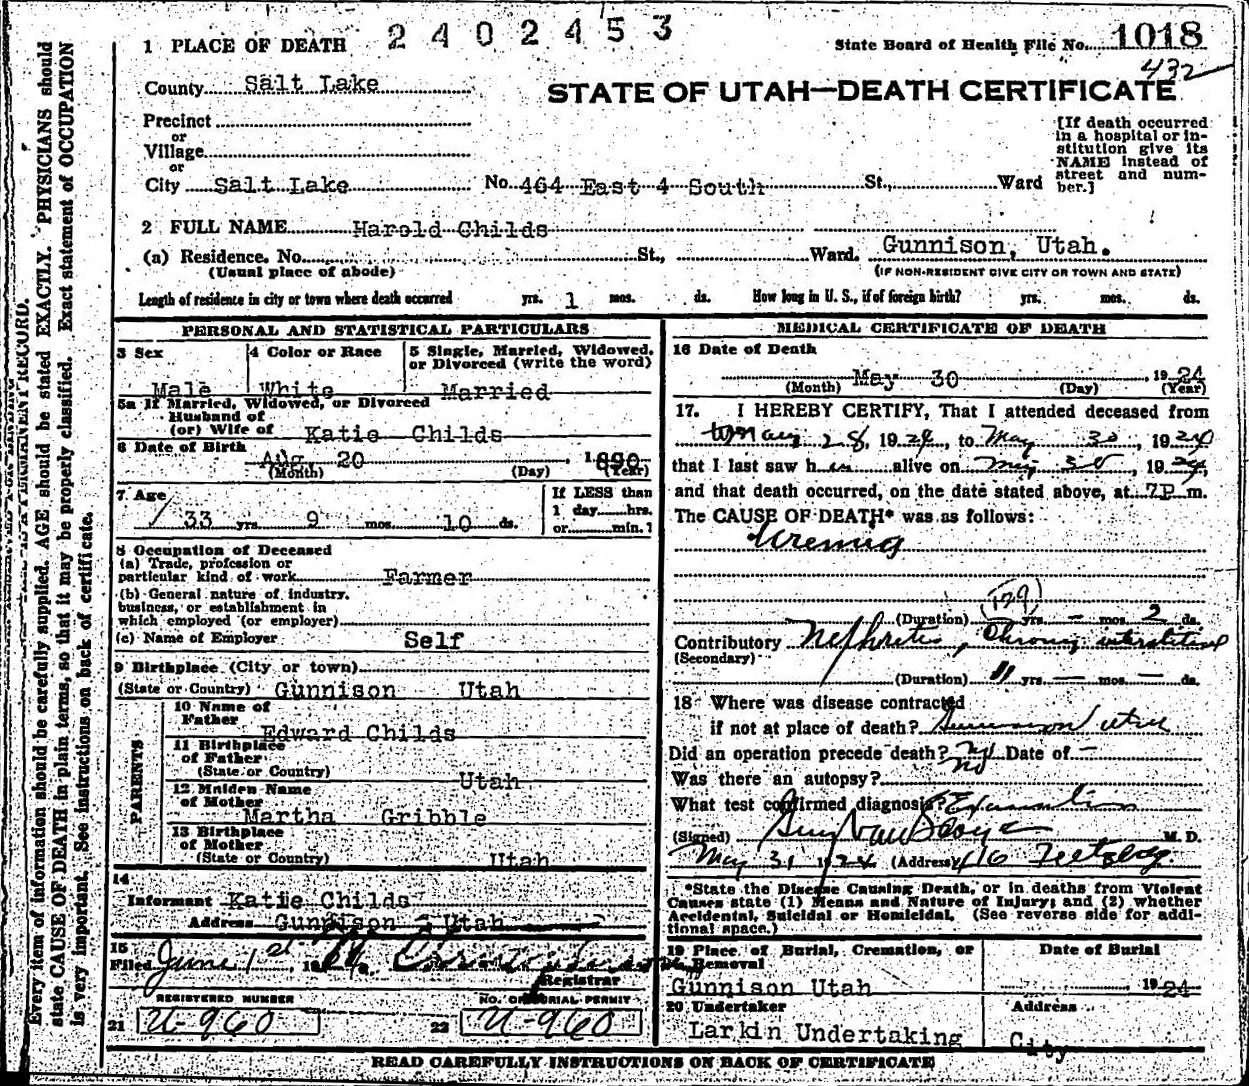 2402453
State Board of Health File No. 1018
432
1 PLACE OF DEATH
County Salt Lake
STATE OF UTAH—DEATH CERTIFICATE
Precinct
or
Village
or
City Salt Lake No. 464 East 4 South St., Ward
[If death occurred in a hospital or in-
stitution give its
NAME instead of
street and num-
ber.]
2 FULL NAME Harold Childs
(a) Residence. No. St., Ward. Gunnison, Utah.
(Usual place of abode) (IF NON-RESIDENT GIVE CITY OR TOWN AND STATE)
Length of residence in city or town where death occurred yrs. 1 mos. ds. How long in U. S., if of foreign birth? yrs. mos. ds.
PERSONAL AND STATISTICAL PARTICULARS
3 Sex
Male
4 Color or Race
White
5 Single, Married, Widowed,
or Divorced (write the word)
Married
5a If Married, Widowed, or Divorced
Husband of
(or) Wife of Katie Childs
6 Date of Birth
Aug. 20, 1890
(Month) (Day) (Year)
7 Age
33 yrs. 9 mos. 10 ds.
If LESS than
1 day hrs.
or min.?
8 Occupation of Deceased
(a) Trade, profession or
particular kind of work Farmer
(b) General nature of industry,
business, or establishment in
which employed (or employer)
(c) Name of Employer Self
9 Birthplace (City or town)
(State or Country) Gunnison Utah
PARENTS
10 Name of
Father Edward Childs
11 Birthplace
of Father
(State or Country) Utah
12 Maiden Name
of Mother
Martha Gribble
13 Birthplace
of Mother
(State or Country) Utah
14
Informant Katie Childs
Address Gunnison Utah
15
Filed June 1st, 19
Registrar
REGISTERED NUMBER NO. OF BURIAL PERMIT
21 U-960 22 U-960
MEDICAL CERTIFICATE OF DEATH
16 Date of Death
May 30, 1924
(Month) (Day) (Year)
17. I HEREBY CERTIFY, That I attended deceased from
May 28 1924, to May 30, 1924
that I last saw him alive on May 30, 1924,
and that death occurred, on the date stated above, at 7P m.
The CAUSE OF DEATH* was as follows:
Uremia
(129)
(Duration) yrs. — mos. 2 ds.
Contributory Nephritis, Chronic interstitial
(Secondary)
(Duration) yrs. — mos. — ds.
18 Where was disease contracted
if not at place of death? Gunnison Utah
Did an operation precede death? no Date of —
Was there an autopsy? no
What test confirmed diagnosis? Examination
(Signed) M. D.
May 31 1924 (Address) 416
*State the Disease Causing Death, or in deaths from Violent
Causes state (1) Means and Nature of Injury; and (2) whether
Accidental, Suicidal or Homicidal. (See reverse side for addi-
tional space.)
19 Place of Burial, Cremation, or
Removal
Gunnison Utah
Date of Burial
1924
20 Undertaker
Larkin Undertaking
Address
City
READ CAREFULLY INSTRUCTIONS ON BACK OF CERTIFICATE
Every item of information should be carefully supplied. AGE should be stated EXACTLY. PHYSICIANS should
state CAUSE OF DEATH in plain terms, so that it may be properly classified. Exact statement of OCCUPATION
is very important. See instructions on back of certificate.